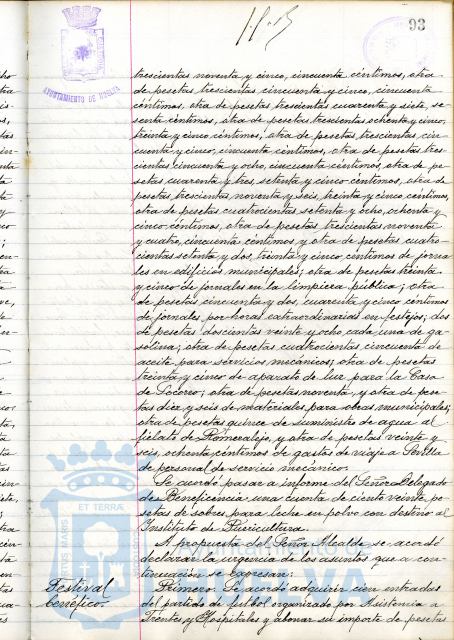 93
AYUNTAMIENTO DE HUELVA
trescientas noventa y cinco, cincuenta céntimos, otra
de pesetas trescientas cincuenta y cinco, cincuenta
céntimos, otra de pesetas trescientas cuarenta y siete, se-
senta céntimos, otra de pesetas trescientas ochenta y cinco,
treinta y cinco céntimos; otra de pesetas, trescientas, cin-
cuenta y cinco, cincuenta céntimos, otra de pesetas tres-
cientas cincuenta y ocho, cincuenta céntimos, otra de pe-
setas cuarenta y tres setenta y cinco céntimos, otra de
pesetas trescientas noventa y seis, treinta y cinco céntimos,
otra de pesetas cuatrocientas setenta y ocho, ochenta y
cinco céntimos, otra de pesetas trescientas noventa
y cuatro, cincuenta céntimos, y otra de pesetas cuatro-
cientas setenta y dos, treinta y cinco céntimos de jorna-
les en edificios municipales; otra de pesetas treinta
y cinco de jornales en la limpieza pública; otra
de pesetas cincuenta y dos, cuarenta y cinco céntimos
de jornales por horas extraordinarias en festejos; dos
de pesetas doscientas veinte y ocho cada una de ga-
solina; otra de pesetas cuatrocientas cincuenta de
aceite para servicios mecánicos; otra de pesetas
treinta y cinco de aparato de luz para la Casa
de Socorro; otra de pesetas noventa, y otra de pese-
tas diez y seis de materiales para obras municipales;
otra de pesetas quince de suministro de agua al
fielato de Romeralejo, y otra de pesetas veinte y
seis, ochenta céntimos de gastos de viaje a Sevilla
de personal de servicio mecánico.
Se acordó pasar a informe del Señor Delegado
de Beneficencia una cuenta de ciento veinte pe-
setas de sobres para leche en polvo con destino al
Instituto de Puericultura.
A propuesta del Señor Alcalde se acordó
declarar la urgencia de los asuntos que a con-
tinuación se expresan:
Festival
benéfico.
Primero. Se acordó adquirir cien entradas
del partido de futbol organizado por Asistencia a
Frentes y Hospitales y abonar su importe de pesetas